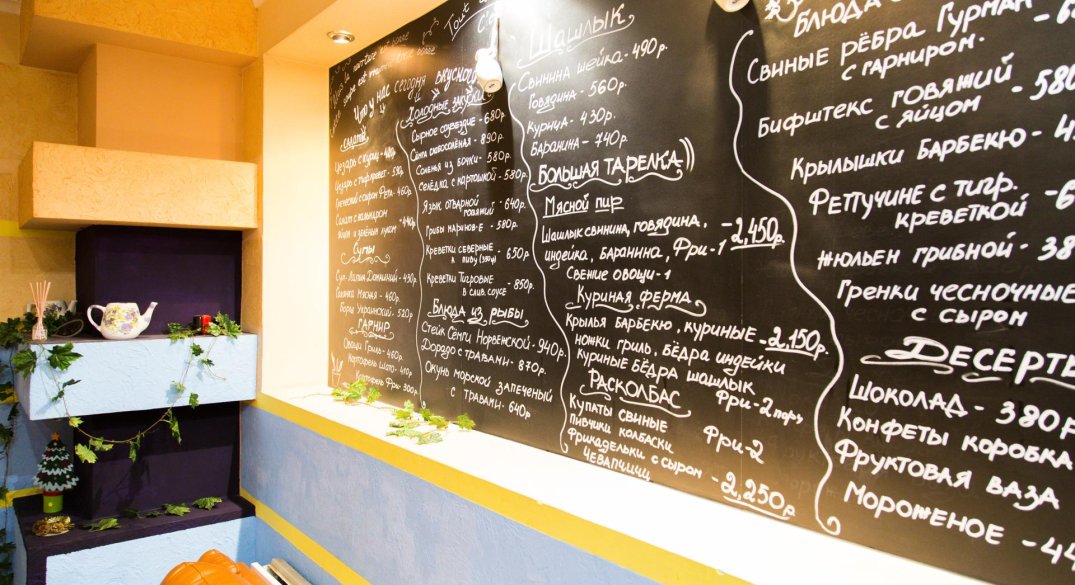 Что у нас сегодня вкусного
САЛАТЫ
Цезарь с куриц
Цезарь с тигр.кревет.
460р.
Салат с кальмаром
яйцом и зелёным луком
Супы
Суп-Лапша Домашний - 430р
Мясная - 460р.
Борщ Украинский - 520р
ГАРНИР
Овощи Гриль - 460р.
Картофель
Картофель Фри - 300р
Холодные закуски
Сырное созвездие - 680р
Сёмга слабосолёная - 890р.
Соленья из бочки - 580р
Селёдка с картошкой - 580р.
Язык отварной
говяжий - 640р.
Грибы
Креветки северные - 650р
к пиву
Креветки Тигровые
в слив. соусе - 850р.
Блюда из рыбы
Стейк Сёмги Норвежской - 940р.
Дорадо с травами - 870р.
Окунь морской запеченый
с травами - 640р.
Шашлык
Свинина шейка - 490р.
Говядина - 560р.
Курица - 430р.
Баранина - 740р.
БОЛЬШАЯ ТАРЕЛКА))
Мясной пир
Шашлык свинина, говядина, - 2,450р.
индейка, баранина, Фри-1
Свежие овощи-1
Куриная ферма
Крылья барбекю, куриные - 2,150р.
ножки гриль, бёдра индейки
Куриные бёдра шашлык
Фри-2 порц
РАСКОЛБАС
Купаты свиные
Пивчики колбаски Фри-2
Фрикадельки с сыром - 2,250р.
Чевапчичи
БЛЮДА
Гурман
Свиные рёбра
с гарниром.
Бифштекс говяжий - 580
с яйцом
Крылышки барбекю - 4
Феттучине с тигр. - 6
креветкой
Жюльен грибной - 38
Гренки чесночные
с сыром
ДЕСЕРТЫ
Шоколад - 380р
Конфеты коробка
Фруктовая ваза
Мороженое - 44